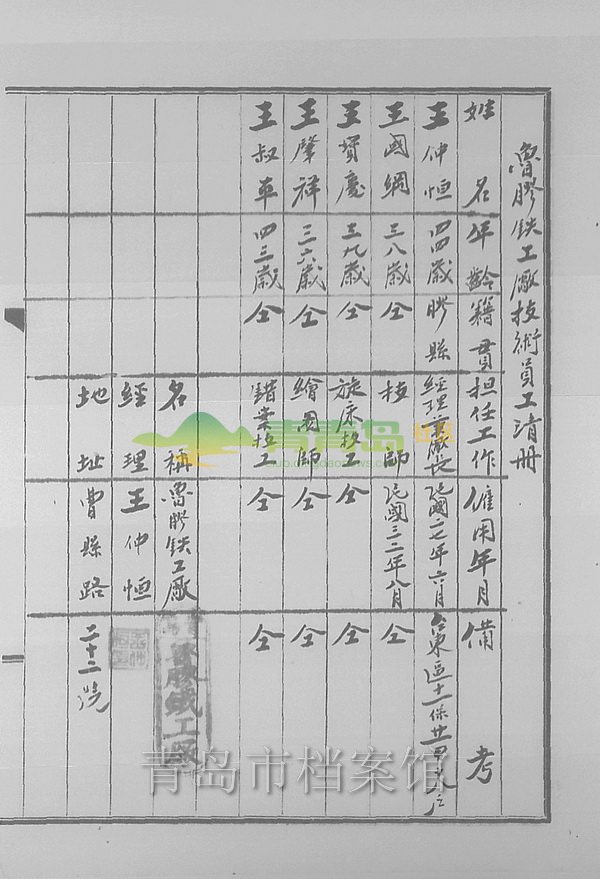 魯膠鉄工廠技術員工清册
姓名 年齡 籍貫 担任工作 僱用年月 備考
王仲恒 四四歲 膠縣 經理兼廠長 民國二七年六月 台東區十一保廿四
王國網 三八歲 仝 技師 民國三二年八月 仝
王寶慶 三九歲 仝 旋床技工 仝 仝
王肇祥 三六歲 仝 繪圖師 仝 仝
王叔車 四三歲 仝 鉗案技工 仝 仝
名稱 魯膠鉄工廠
魯膠鐵工廠
經理 王仲恒
地址 曹縣路 二十二號
青青岛社区
青岛市档案馆